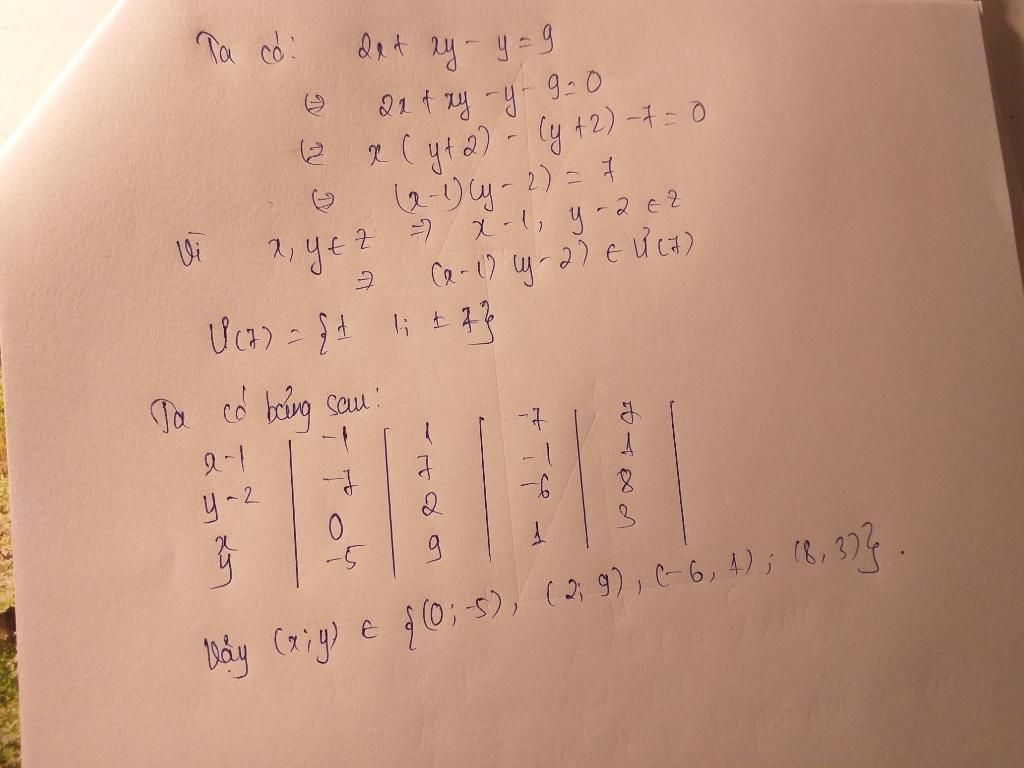 Ta có: 2x + xy - y = 9
⇔ 2x + xy - y - 9 = 0
⇔ x (y+2) - (y+2) - 7 = 0
⇔ (x-1)(y-2) = 7
Vì x, y ∈ Z ⇒ x-1, y-2 ∈ Z
⇒ (x-1) (y-2) ∈ Ư(7)
Ư(7) = {± 1; ± 7}
Ta có bảng sau:
x-1 | -1 | 1 | -7 | 7 |
y-2 | -7 | 7 | -1 | 1 |
x | 0 | 2 | -6 | 8 |
y | -5 | 9 | 1 | 3 |
Vậy (x;y) ∈ {(0;-5), (2;9), (-6,1); (8,3)}.